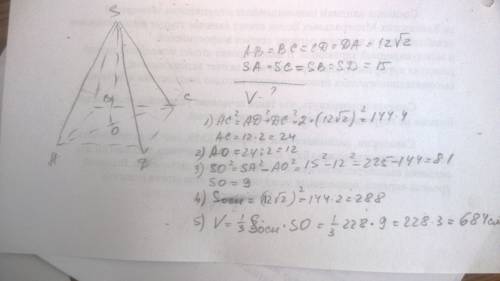 S
A
B
C
O
AB=BC=CD=DA=12√2
SA=SC=SB=SD=15
V-?
1) AC²=AD²+DC²=2*(12√2)²=144·4
AC=12·2=24
2) AO=24:2=12
3) SO²=SA²-AO²=15²-12²=225-144=81
SO=9
4) Sосн=(12√2)²=144·2=288
5) V=1/3 Sосн·SO=1/3 228·9=228·3=684